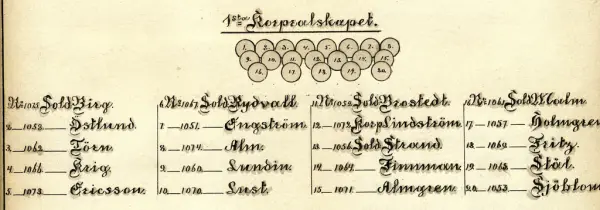 1sta Korpralskapet.
1. 2. 3. 4. 5. 6. 7. 8.
9. 10. 11. 12. 13. 14. 15.
16. 17. 18. 19. 20.
Sold Birg. 6 No 1067 Sold Rydvall. 11 No 1058 Sold Brostedt. 16 No 1061 Sold Malm.
2 1052 Östlund. 7 1051 Engström. 12 1072 Korp Lindström. 17 1057 Holmgren
3 1062 Törn. 8 1074 Alm. 13 1056 Sold Strand. 18 1069 Fritz.
4 1066 Krig. 9 1060 Lundin. 14 1064 Finnman. 19 1065 Stål.
5 1073 Ericsson. 10 1070 Lust. 15 1071 Almgren. 20 1053 Sjöblom